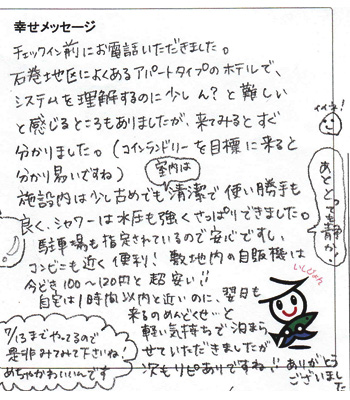 幸せメッセージ
チェックイン前にお電話いただきました。
石巻地区によくあるアパートタイプのホテルで、
システムを理解するのに少しん?と難しい
と感じるところもありましたが、来てみるとすぐ
分かりました。(コインランドリーを目標に来ると
分かり易いですね)
室内は
施設内は少し古めでも清潔で使い勝手も
良く、シャワーは水圧も強くさっぱりできました。
駐車場も指定されているので安心ですし、
コンビニも近く便利!敷地内の自販機は
今どき100~120円と超安い!!
自宅は1時間以内と近いのに、翌日も
来るのめんどくせ~と
軽い気持ちで泊まら
せていただきましたが
次もリピありですね!!
ありがとう
ございました
イイネ!
あととっても静か!
いしぴょん
7/13までやってるので
是非みてみて下さいね!
めちゃかわいいんです